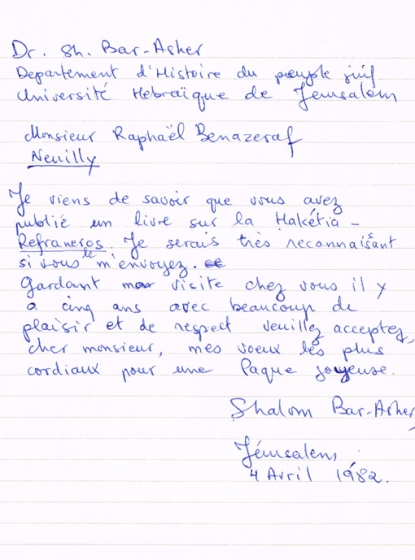 Dr. Sh. Bar-Asher
Departement d'Histoire du peuple juif
Université Hebraïque de Jerusalem
Monsieur Raphaël Benazeraf
Neuilly
Je viens de savoir que vous avez
publié un livre sur la Hakétia -
Refraneros. Je serais très reconnaissant
si vous le m'envoyez.
Gardant ma visite chez vous il y
a cinq ans avec beaucoup de
plaisir et de respect veuillez acceptez,
cher monsieur, mes voeux les plus
cordiaux pour une Paque joyeuse.
Shalom Bar-Asher
Jérusalem,
4 Avril 1982.